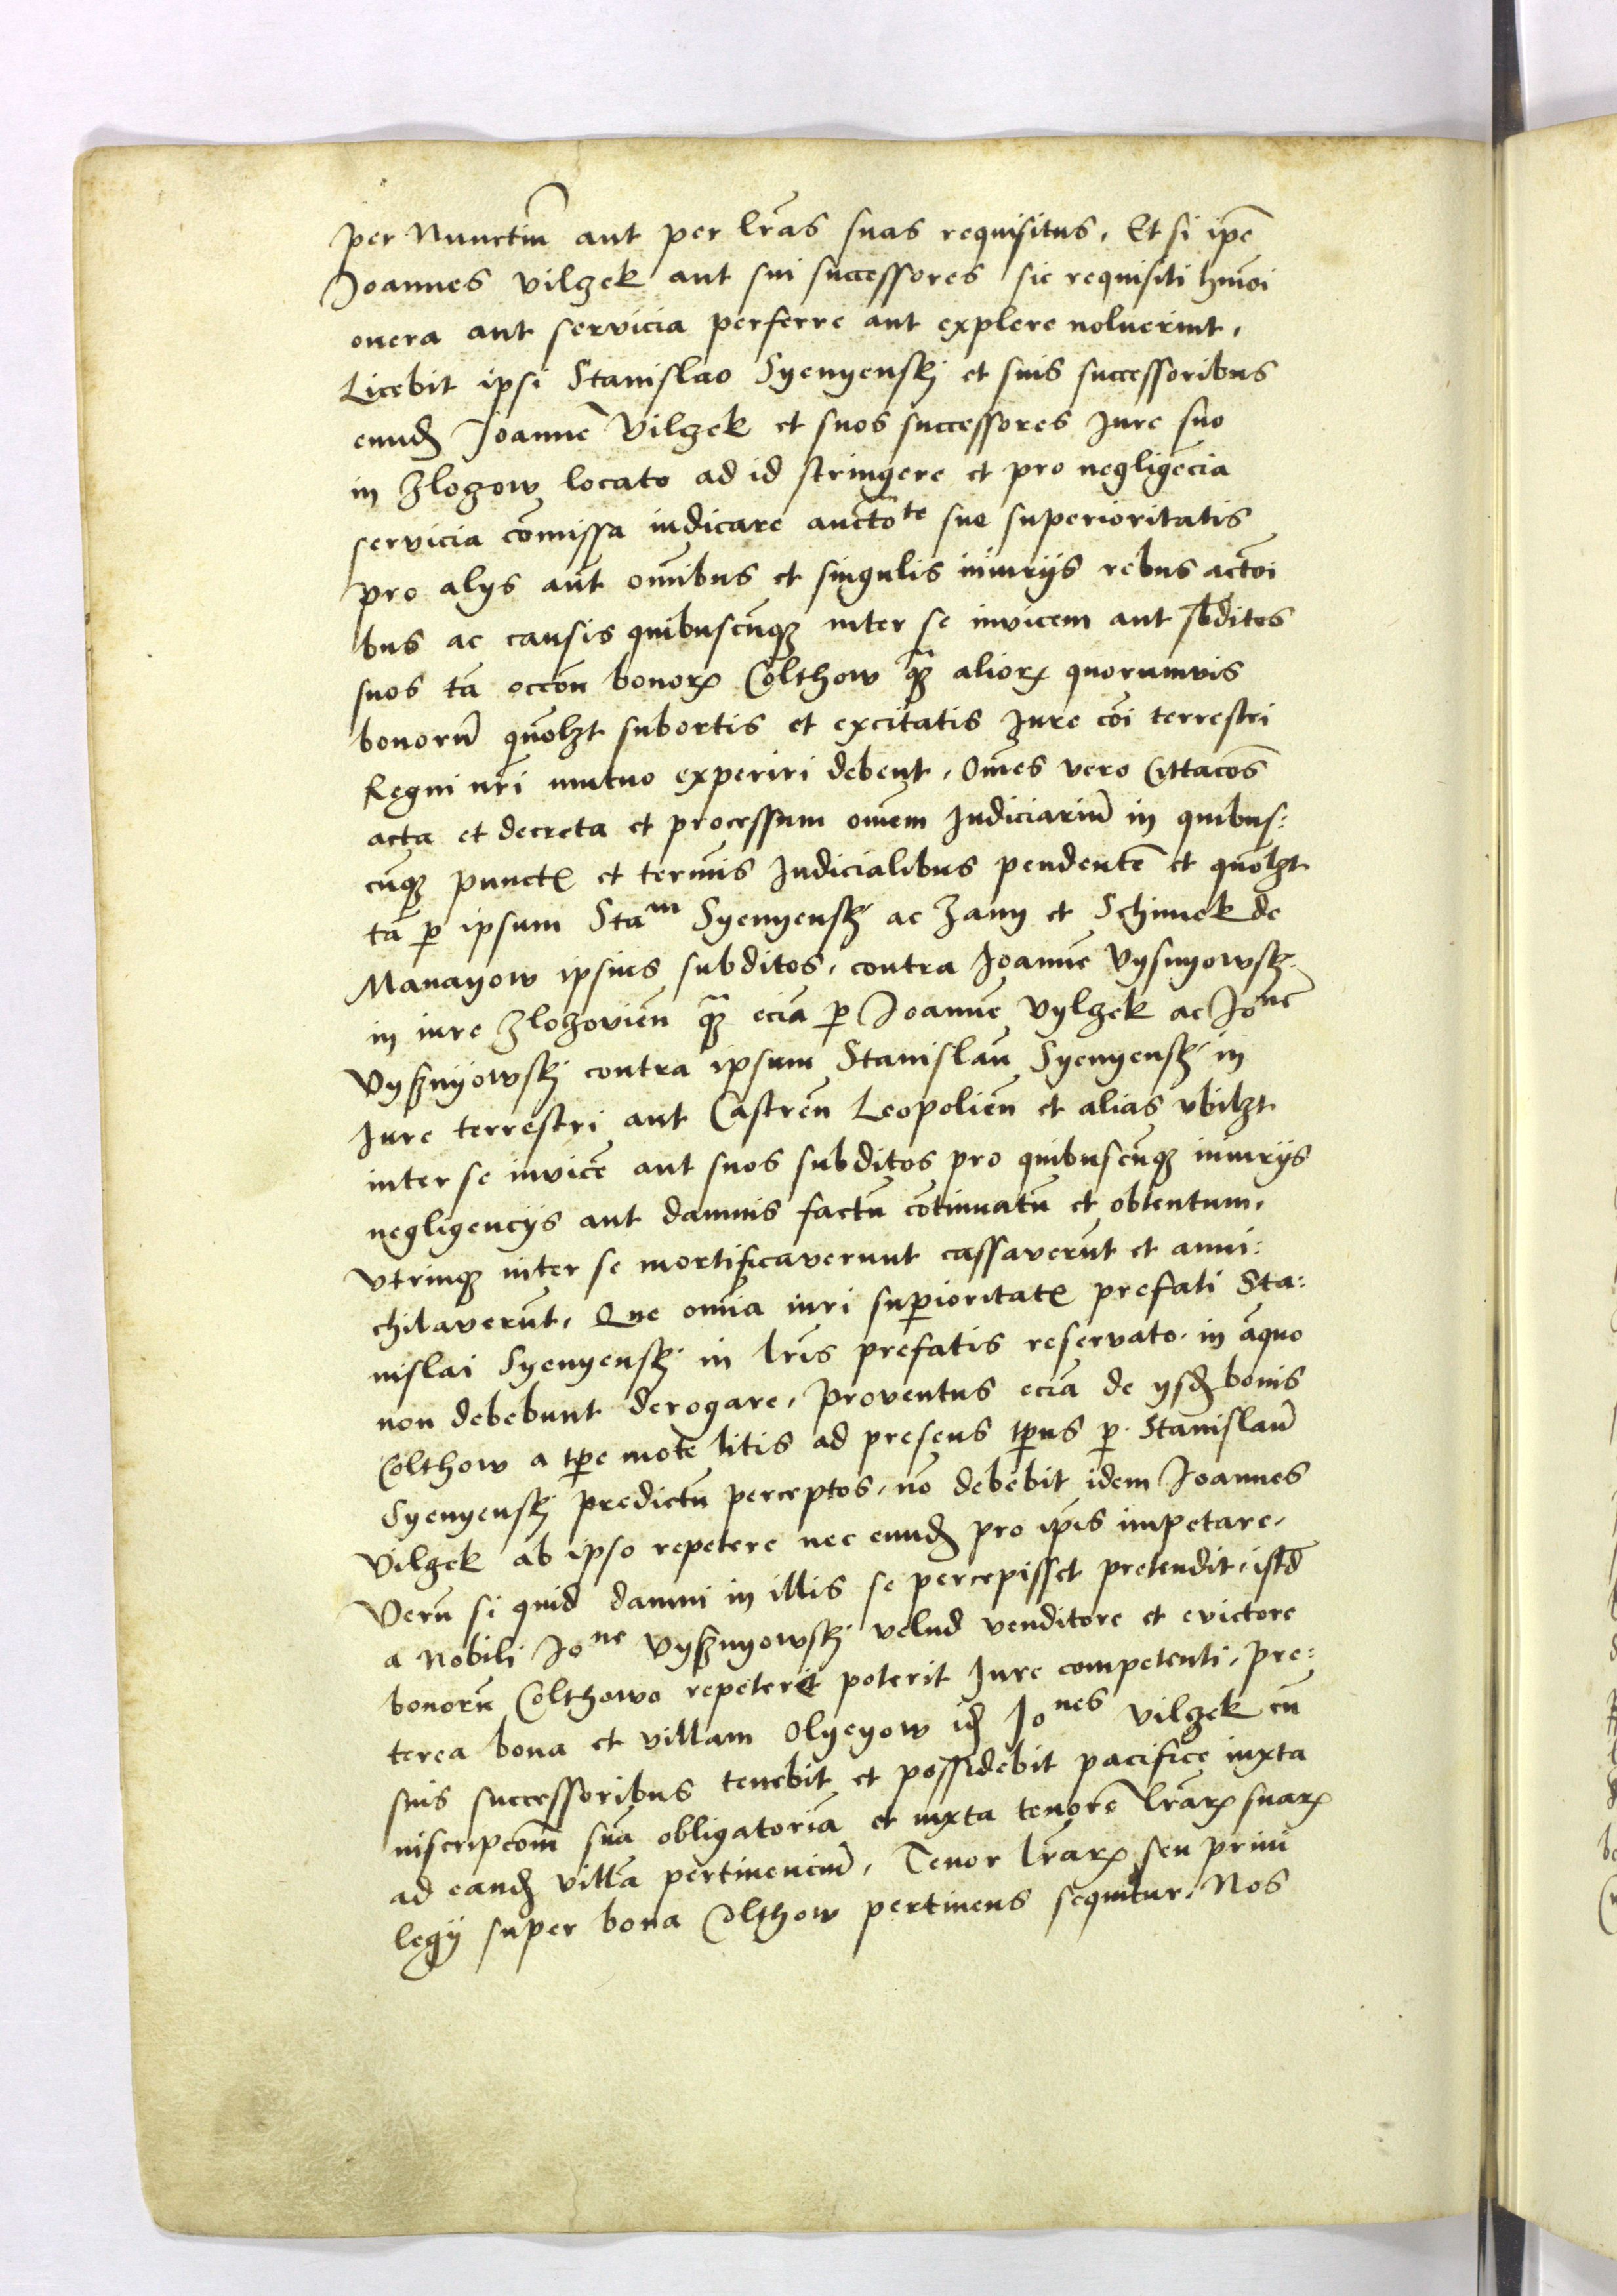 per Nunctiū aut per lr̄as suas requisitus, Et si ip̄e
Joannes Vilzek aut sui successores sic requisiti hm̄oi
onera aut servicia perferre aut explere noluerint,
Licebit ipsi Stanislao Syenyenskj et suis successoribus
eundꝫ Joannē Vilzek et suos successores Jure suo
in Zlozow locato ad id stringere et pro negligēcia
servicia com̄issa iudicare auctōte sue superioritatis
pro alys aūt om̄ibus et singulis iniurijs rebus actōi
bus ac causis quibuscūqꝫ inter se invicem aut sbditos
suos tā occōn bonoꝝ Colthow qꝫ̄ alioꝝ quorumvis
bonorū quōlzt subortis et excitatis Jure cōi terrestri
Regni nr̄i mutuo experiri debent, Om̄es vero Cittacōs
acta et decreta et processum om̄em Judiciariū in quibus:
cūqꝫ punctꝭ et term̄is Judicialibus pendentē et quōlzt
tā ꝑ ipsum Staᵐ Syenyenskj ac Jany et Schimek de
Manayow ipsius subditos, contra Joannē Vysnyowskj
in iure Zlozovien̄ qꝫ̄ eciā ꝑ Joannē Vylzek ac Joⁿᵉ
Vyssnyowskj contra ipsum Stanislaū Syenyenskj in
Jure terrestri aut Castren̄ Leopolien̄ et alias vbilzt
inter se invicē aut suos subditos pro quibuscūqꝫ iniurijs
negligencijs aut damnis factū cōtinuatū et obtentum,
vtrinqꝫ inter se mortificaverunt cassaverūt et anni:
chilaverūt, Que om̄ia iuri suꝑioritatꝭ prefati Sta:
nislai Syenyenskj in lr̄is prefatis reservato, in āquo
non debebunt derogare, Proventus eciā de ysdꝫ bonis
Colthow a tp̄e mote litis ad presens tp̄us ꝑ Stanislaū
Syenyenskj predictū perceptos, nō debebit idem Joannes
Vilzek ab ipso repetere nec eundꝫ pro ip̄is impetare,
Verū si quid damni in illis se percepisset pretendit, istd̄
a Nobili Joⁿᵉ Vyssnyowskj velud venditore et evictore
bonorū Colthowo repeterit poterit Jure competenti, Pre:
terea bona et villam Olyeyow idꝫ Joⁿᵉˢ Vilzek cū
suis successoribus tenebit et possidebit pacifice iuxta
inscripcōm̄ suā obligatoriā et iuxta tenorē lr̄aꝝ suaꝝ
ad eandꝫ villā pertinenciū, Tenor lr̄aꝝ seu privi
legij super bona Colthow pertinens sequitur, Nos